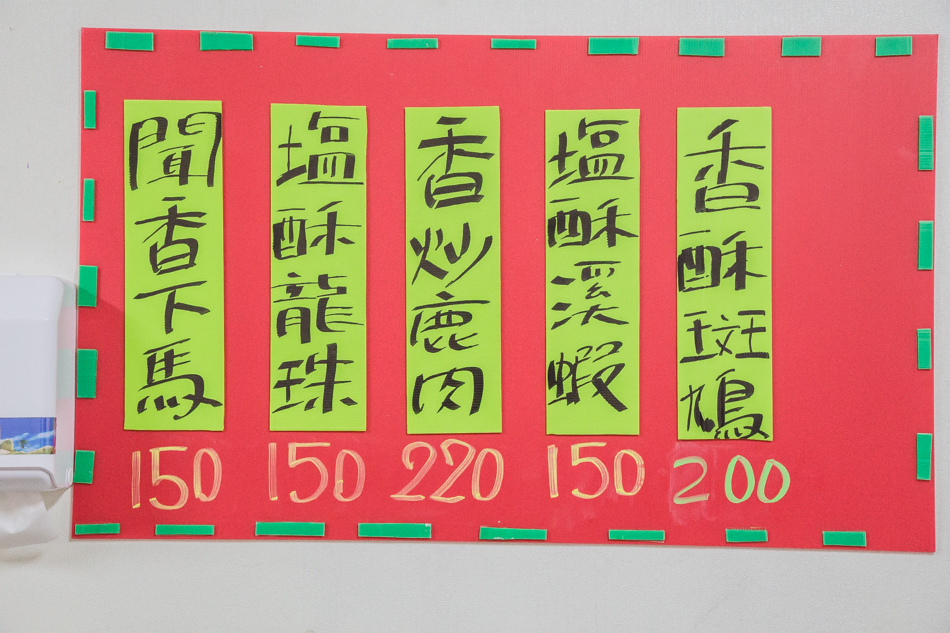 聞香下馬
150
塩酥龍珠
150
香炒鹿肉
220
塩酥溪蝦
150
香酥斑鳩
200